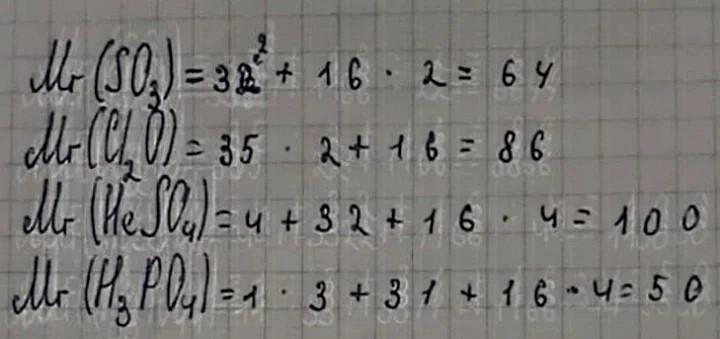 Mr(SO₃) = 32 + 16 · 2 = 64
Mr(Cl₂O) = 35 · 2 + 16 = 86
Mr(HeSO₄) = 4 + 32 + 16 · 4 = 100
Mr(H₃PO₄) = 1 · 3 + 31 + 16 · 4 = 50